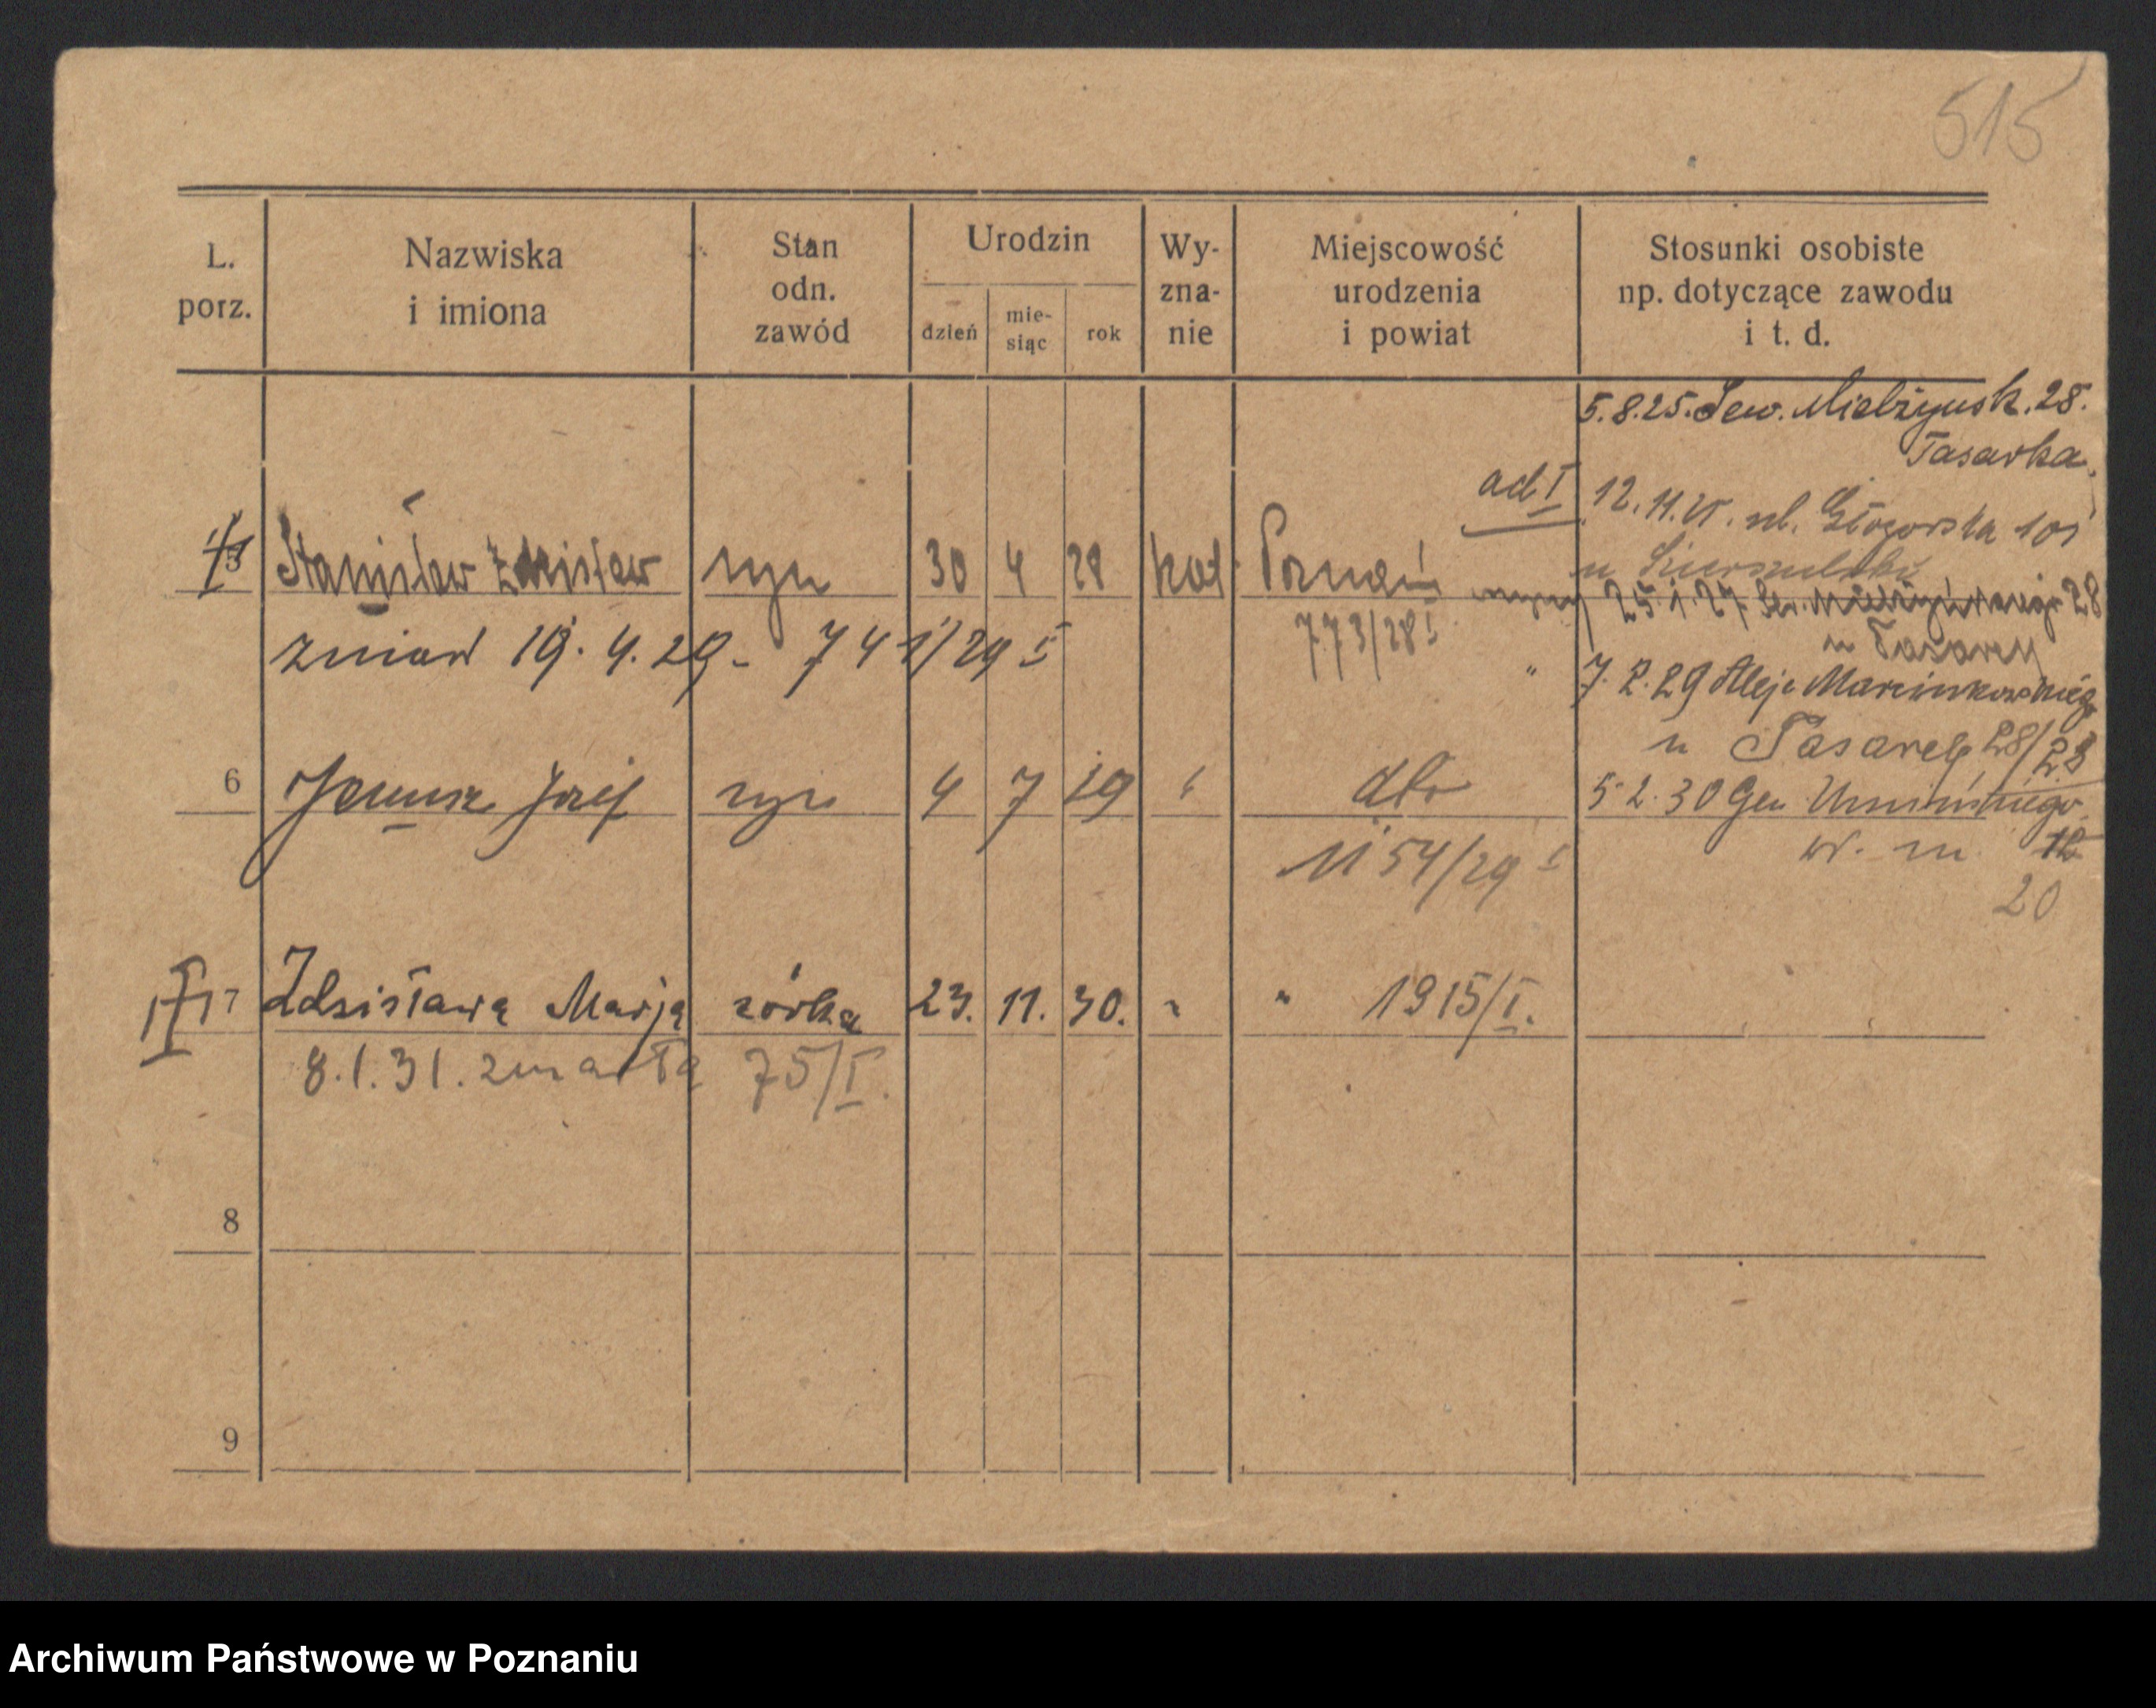 515
L. porz.
Nazwiska i imiona
Stan odn. zawód
Urodzin
dzień
mie-siąc
rok
Wy-zna-nie
Miejscowość urodzenia i powiat
Stosunki osobiste np. dotyczące zawodu i t. d.
5.8.25. Sew. Mielżyńsk. 28.
Tasarka
ad I 12.11.25. ul. Głogowska 101
u
5 Stanisław Zdzisław syn 30 4 28 kat Poznań
25.1.27 Sew. Mielżyńskiego 28
u Tasarek
773/28 I
zmarł 19.4.29 - 741/29 I
" 7.2.29 Aleje Marcinkowskiego
u Tasarek 28/28
6 Janusz Józef syn 4 7 29 " dto
5.2.30 Gen Umińskiego
1154/29 I
w. m. 12
20
7 Zdzisława Marja córka 23. 11. 30. " " 1915/I.
8.1.31. zmarła 75/I.
8
9
Archiwum Państwowe w Poznaniu